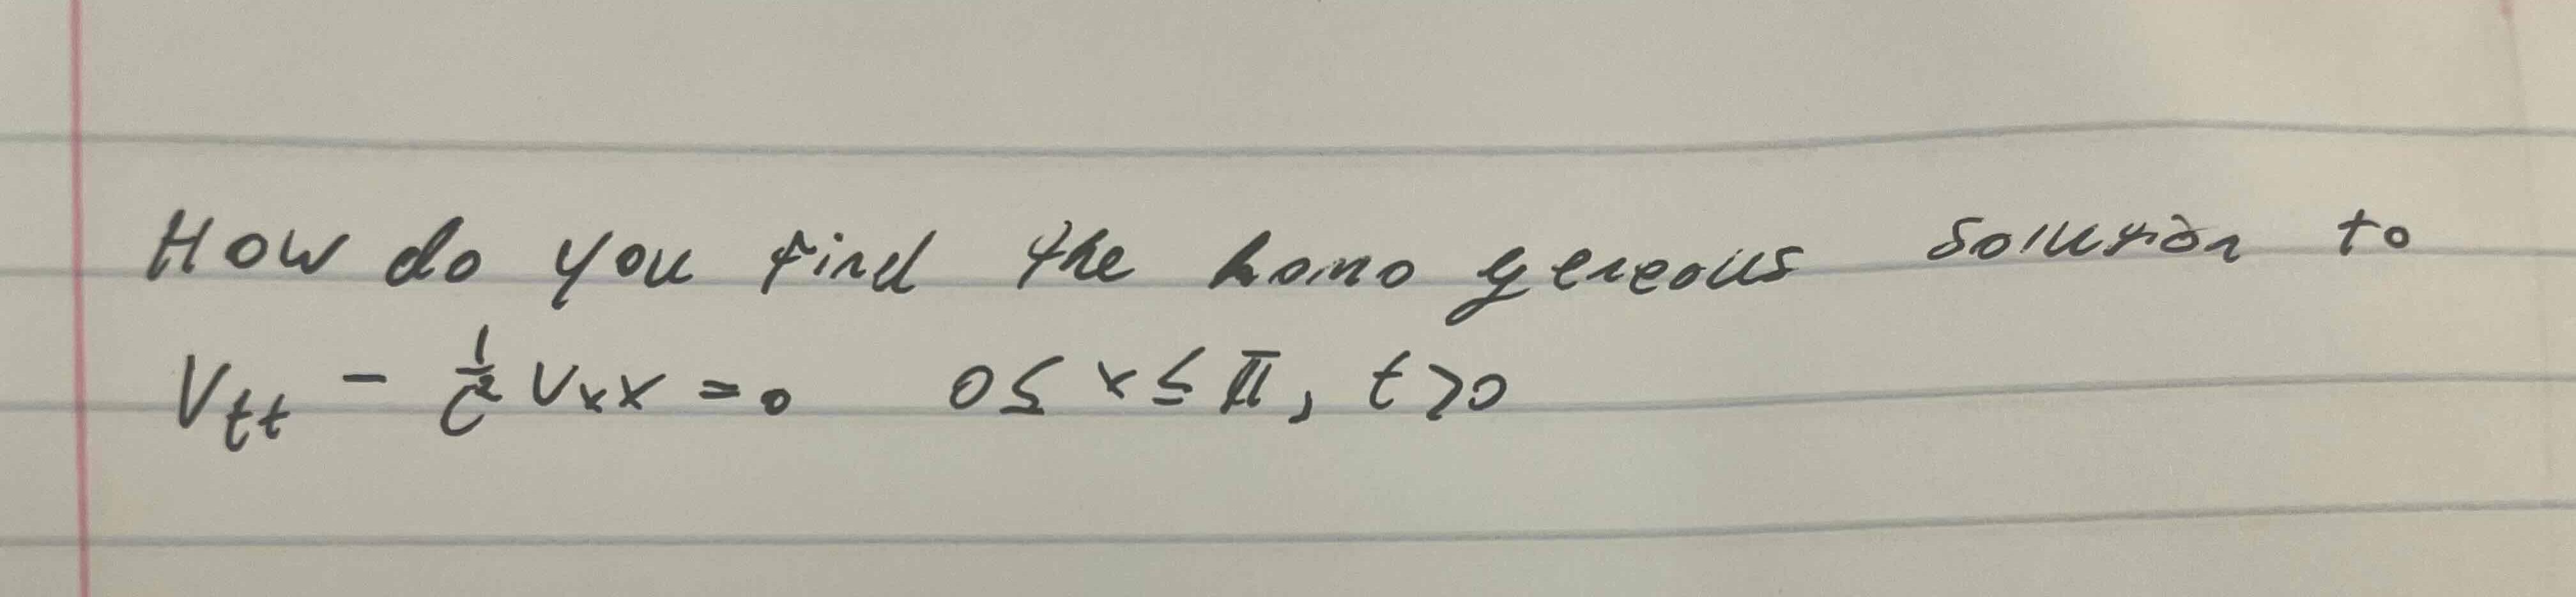 How do you find the homo geneous solution to
V_tt - 1/c² V_xx = 0   0 ≤ x ≤ π, t > 0